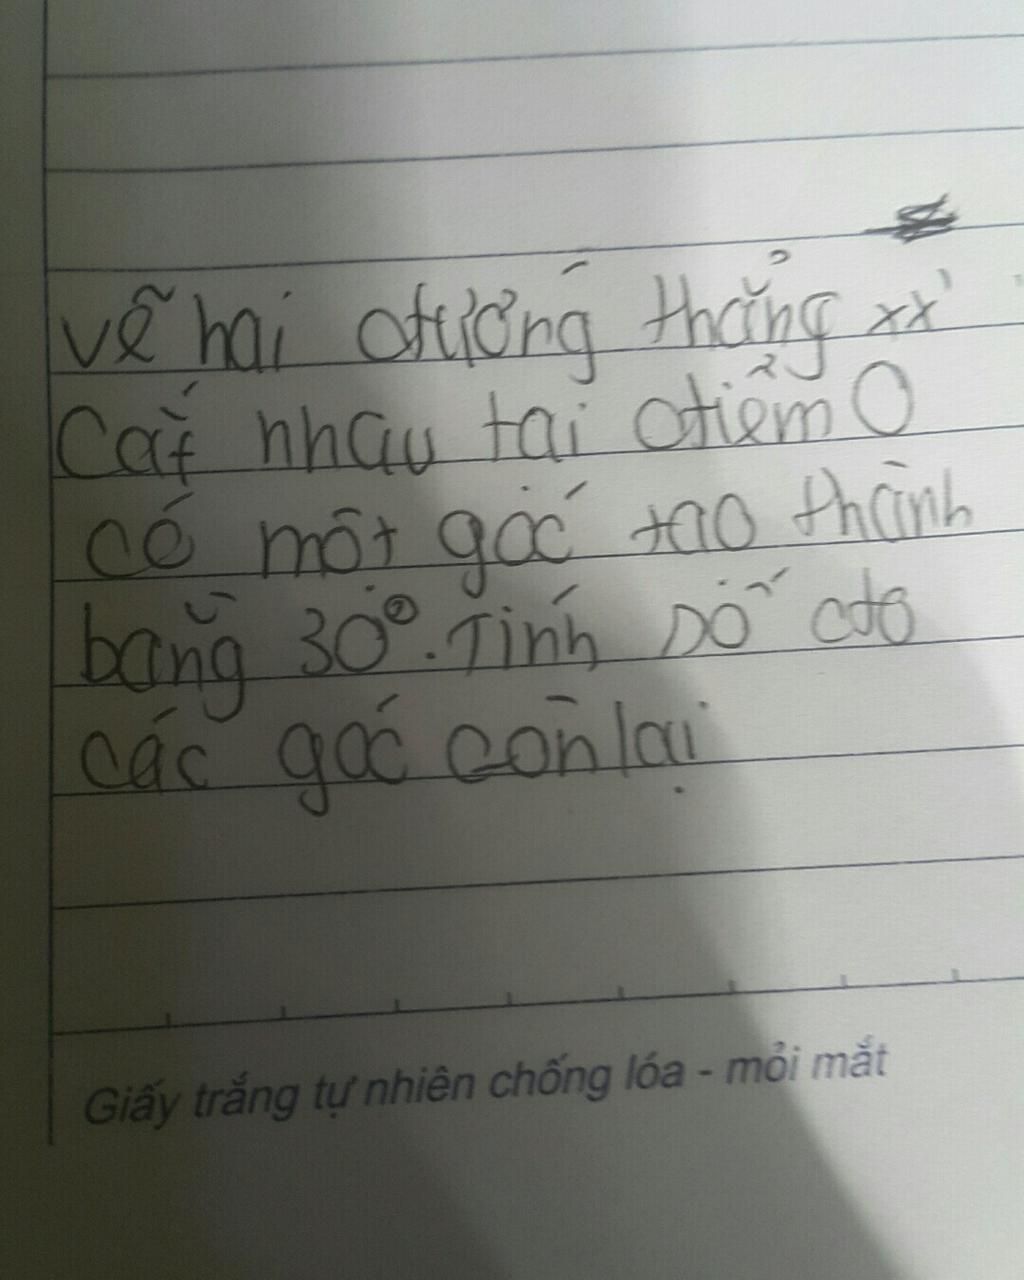 vẽ hai đường thẳng xx'
Cắt nhau tại điểm O
có một góc tạo thành
bằng 30°. Tính số đo
các góc còn lại
Giấy trắng tự nhiên chống lóa - mỏi mắt